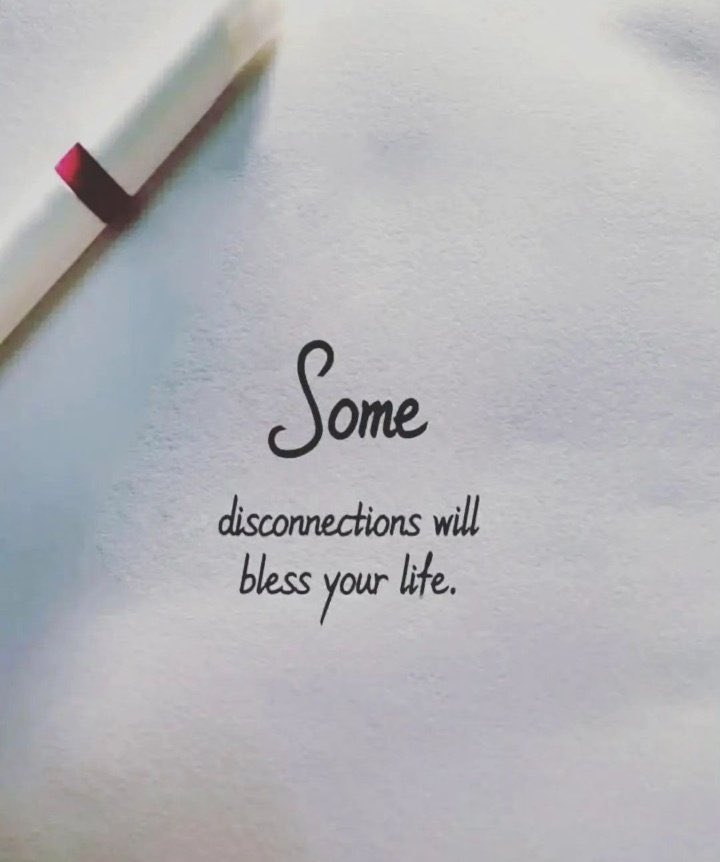 Some
disconnections will
bless your life.